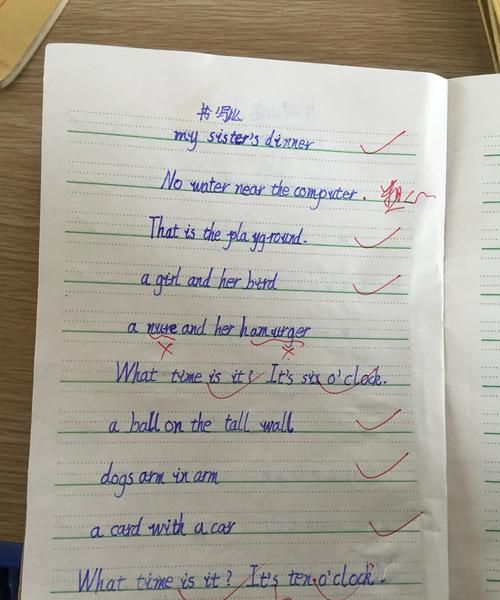 书写
my sister's dinner
No water near the computer.
That is the playground.
a girl and her bird
a nure and her hamurger
What time is it? It's six o'clock.
a ball on the tall wall
dogs arm in arm
a card with a car
What time is it? It's ten o'clock.